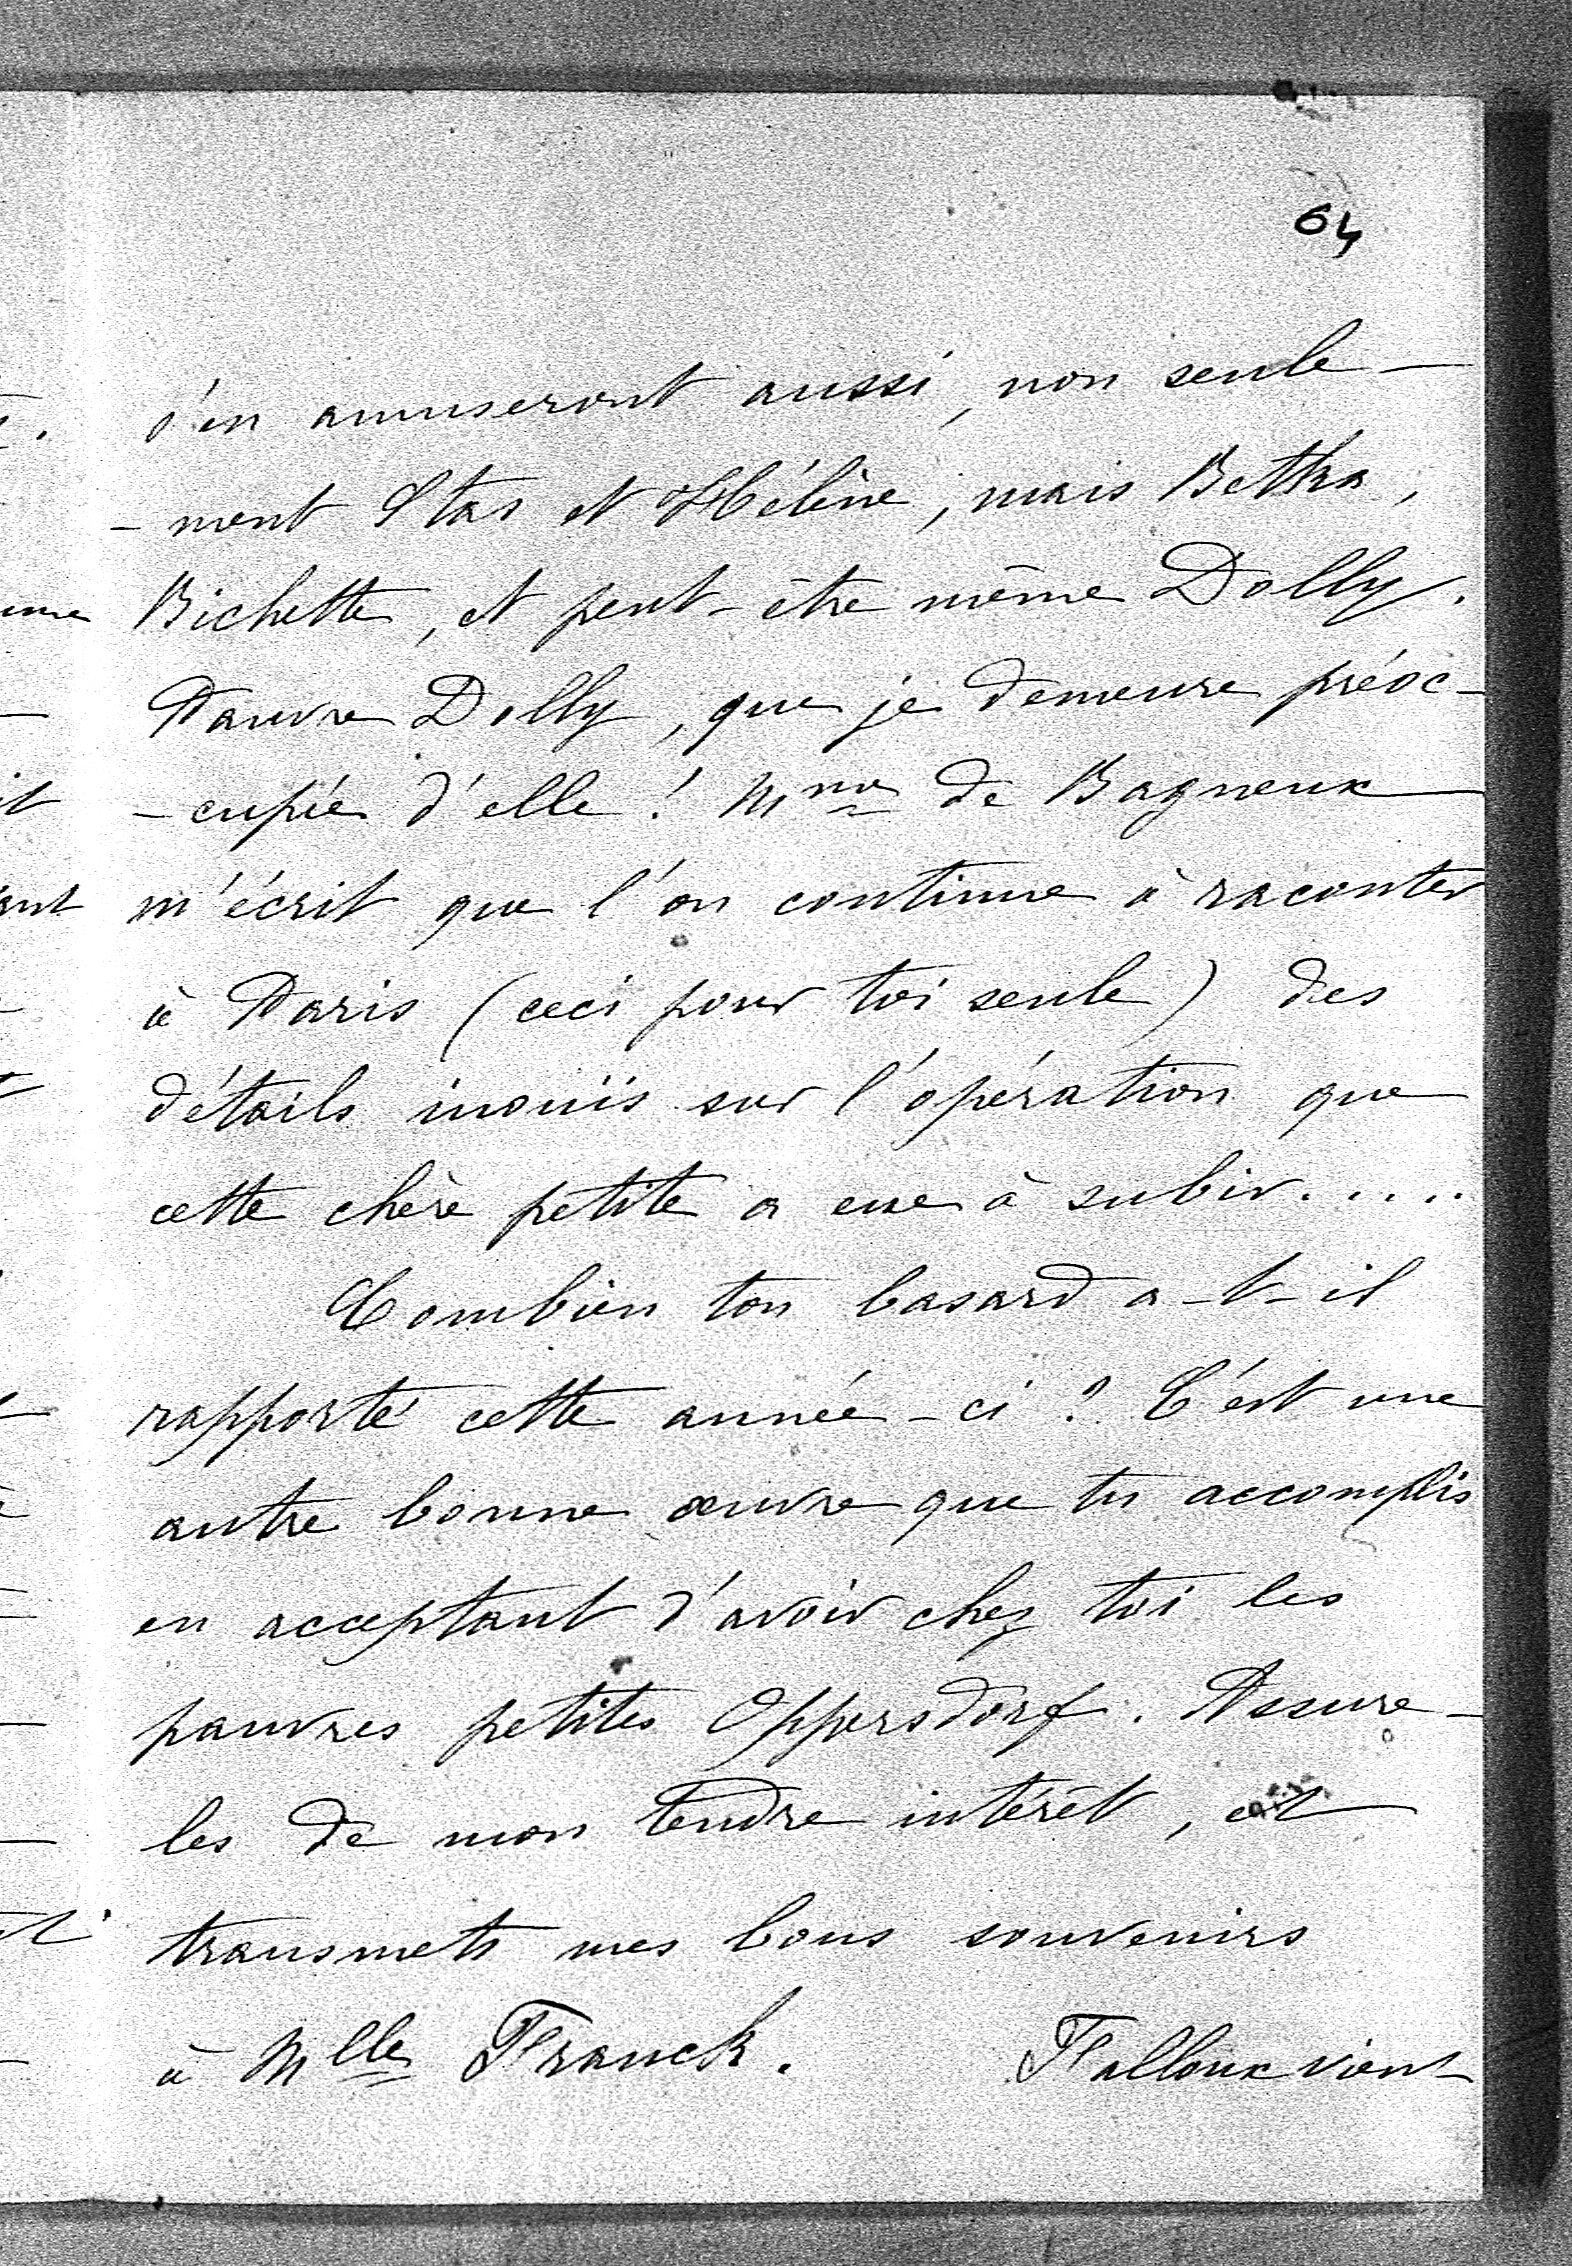 64
s'en amuseront aussi, non seule-
-ment Stas et Hélène, mais Betka,
Bichette, et peut-être même Dolly.
Pauvre Dolly, que je demeure préoc-
-cupée d'elle! Mme de Bagneux
m'écrit que l'on continue à raconter
à Paris (ceci pour toi seule) des
détails inouïs sur l'opération que
cette chère petite a eue à subir.....
Combien ton basard a-t-il
rapporté cette année-ci? C'est une
autre bonne œuvre que tu accomplis
en acceptant d'avoir chez toi les
pauvres petites Oppersdorf. Assure-
les de mon tendre intérêt, et
transmets mes bons souvenirs
à Mlle Franck. Falloux vient